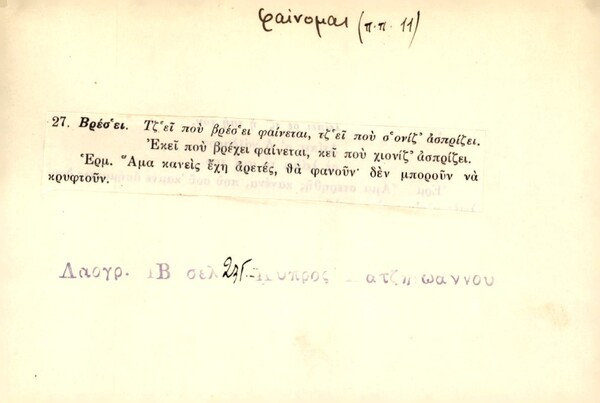 φαίνομαι (π.π. 11)
27. Βρέσ̌ει. Τζ̌εῖ ποὺ βρέσ̌ει φαίνεται, τζ̌εῖ ποὺ σ̌ονίζ᾿ ἀσπρίζει.
Ἐκεῖ ποὺ βρέχει φαίνεται, κεῖ ποὺ χιονίζ᾿ ἀσπρίζει.
Ἑρμ. Ἅμα κανεὶς ἔχῃ ἀρετές, θὰ φανοῦν· δὲν μποροῦν νὰ
κρυφτοῦν.
Λαογρ. ΙΒ σελ Κυπρος